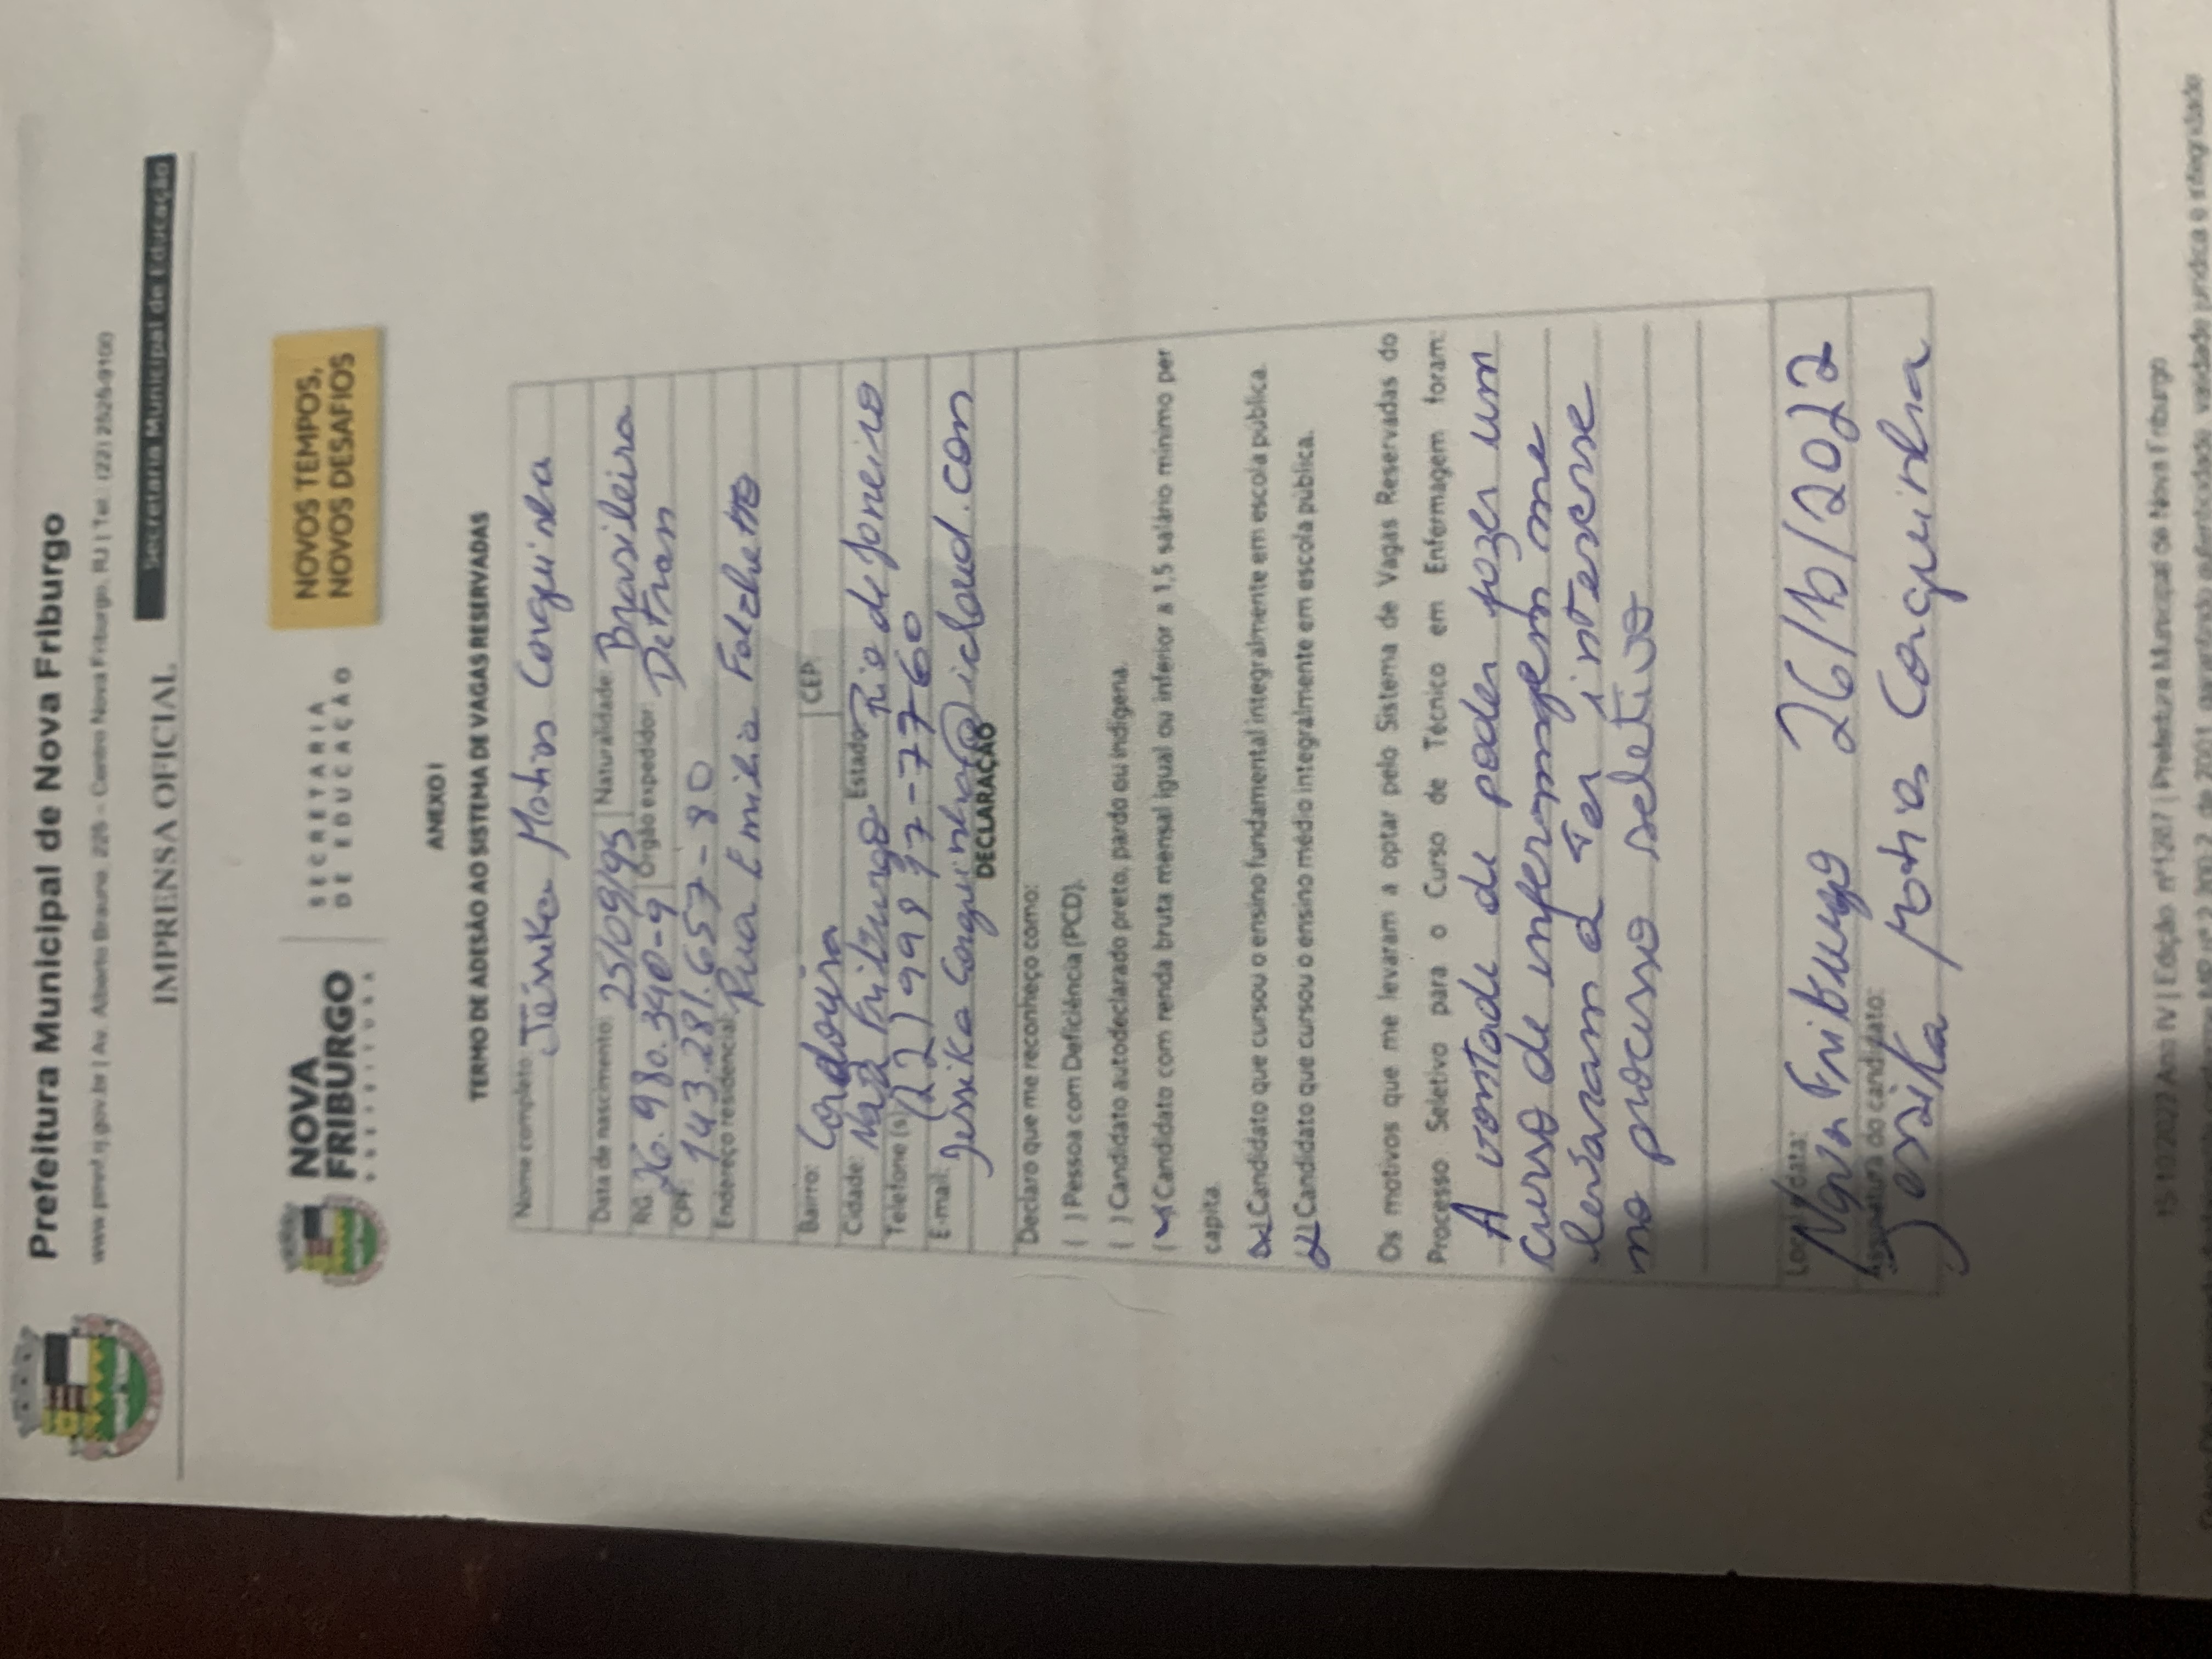 Prefeitura Municipal de Nova Friburgo
www.pmnf.rj.gov.br | Av. Alberto Braune, 225 – Centro Nova Friburgo, RJ | Tel.: (22) 2525-9100
IMPRENSA OFICIAL
Secretaria Municipal de Educação
NOVA
FRIBURGO
PREFEITURA
SECRETARIA
DE EDUCAÇÃO
NOVOS TEMPOS,
NOVOS DESAFIOS
ANEXO I
TERMO DE ADESÃO AO SISTEMA DE VAGAS RESERVADAS
Nome completo: Jéssika Matias Corguinha
Data de nascimento: 25/09/95 Naturalidade: Brasileira
RG: 26.980.340-9 Órgão expedidor: Detran
CPF: 143.281.657-80
Endereço residencial: Rua Emilia Falchetto
Bairro: CEP:
Cidade: Nova Friburgo Estado: Rio de Janeiro
Telefone (s): (22) 99817-7760
E-mail: JessikaCorguinha@icloud.com
DECLARAÇÃO
Declaro que me reconheço como:
( ) Pessoa com Deficiência (PCD).
( ) Candidato autodeclarado preto, pardo ou indígena.
(x) Candidato com renda bruta mensal igual ou inferior a 1,5 salário mínimo per
capita.
(x) Candidato que cursou o ensino fundamental integralmente em escola pública.
(x) Candidato que cursou o ensino médio integralmente em escola pública.
Os motivos que me levaram a optar pelo Sistema de Vagas Reservadas do
Processo Seletivo para o Curso de Técnico em Enfermagem foram:
A vontade de poder fazer um
curso de infermagem me
levaram a ter interesse
no processo seletivo
Local e data:
Nova Friburgo 26/10/2022
Assinatura do candidato:
Jessika Matias Corguinha
15/10/2022 Ano IV | Edição nº1287 | Prefeitura Municipal de Nova Friburgo
Diário Oficial assinado digitalmente conforme MP nº 2.200-2, de 2001, garantindo autenticidade, validade jurídica e integridade